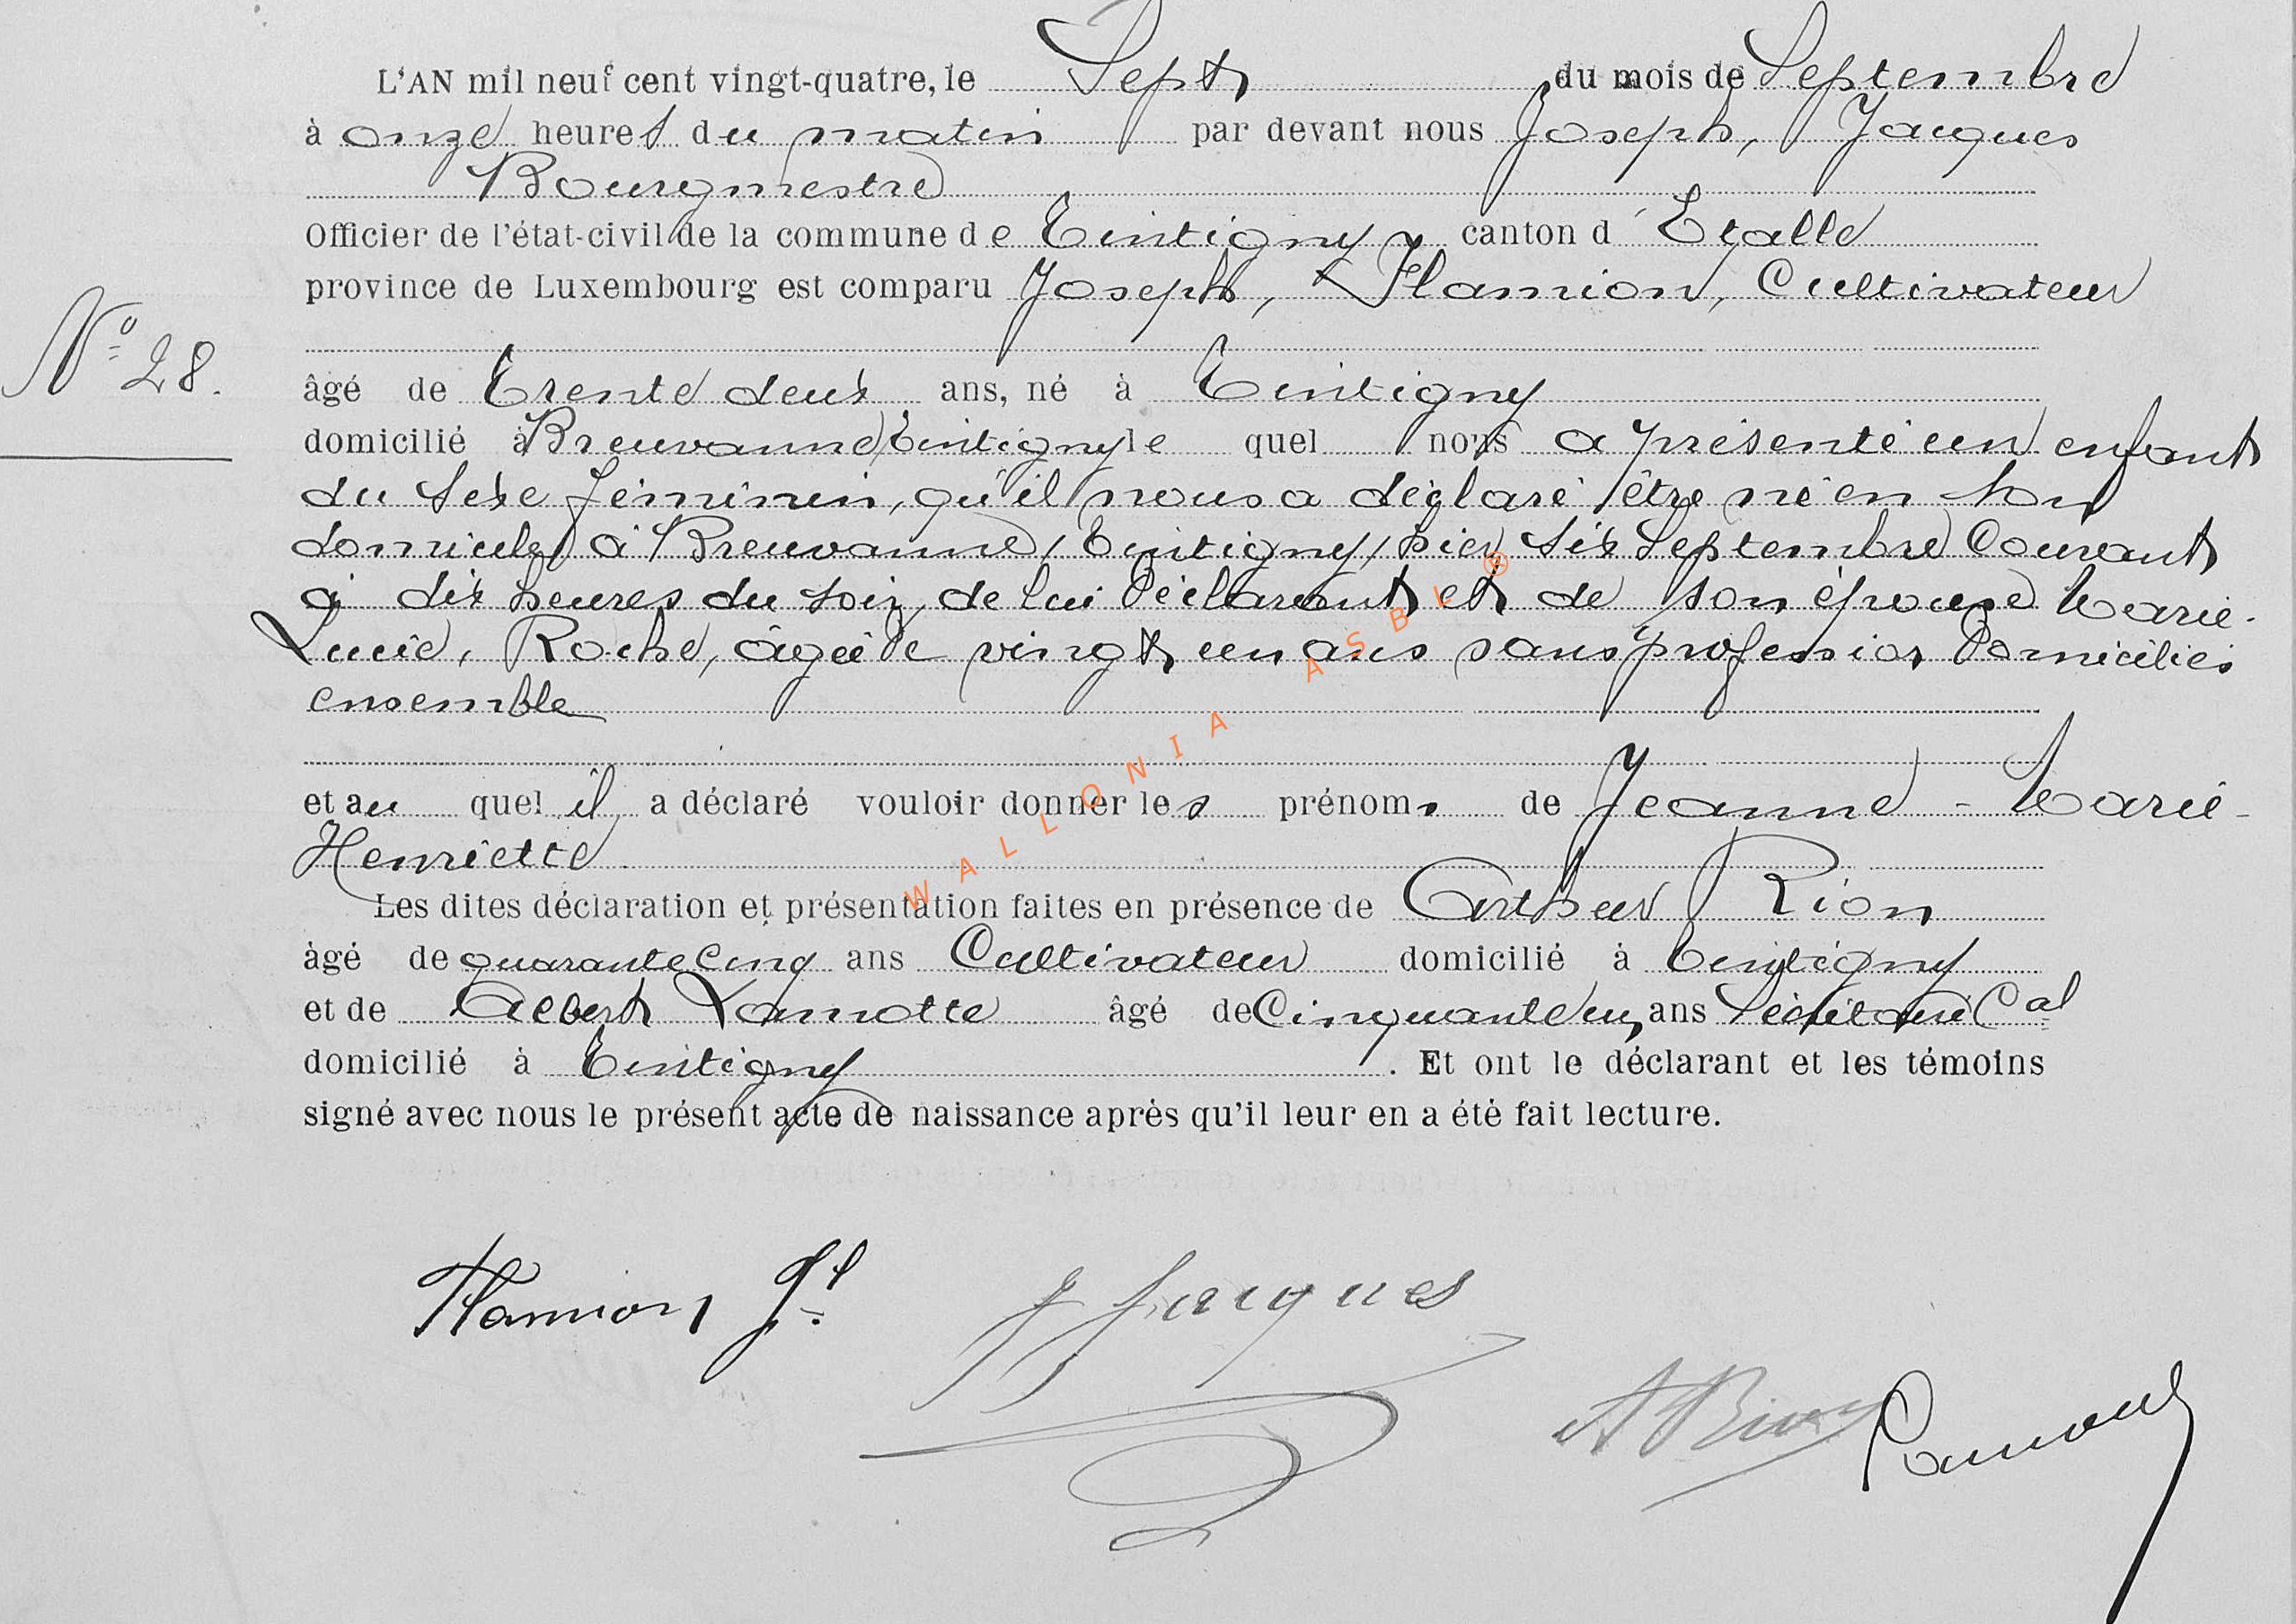 L'AN mil neuf cent vingt-quatre, le Sept du mois de Septembre
à onze heures du matin par devant nous Joseph, Jacques
Bourgmestre
Officier de l'état-civil de la commune de Tintigny canton d'Etalle
province de Luxembourg est comparu Joseph, Flamion, Cultivateur
N° 28.
âgé de Trente deux ans, né à Tintigny
domicilié à Breuvanne/Tintigny le quel nous a présenté un enfant
du sexe féminin, qu'il nous a déclaré être né en son
domicile à Breuvanne/Tintigny, hier six Septembre Courant
à dix heures du soir, de lui Déclarant et de son épouse Marie-
Lucie, Roche, âgée de vingt un ans sans profession Domiciliés
ensemble
et au quel il a déclaré vouloir donner les prénoms de Jeanne - Marie -
Henriette
Les dites déclaration et présentation faites en présence de Arthur Rion
âgé de quarante Cinq ans Cultivateur domicilié à Tintigny
et de Albert Lamotte âgé de Cinquante un ans Secrétaire Cal
domicilié à Tintigny. Et ont le déclarant et les témoins
signé avec nous le présent acte de naissance après qu'il leur en a été fait lecture.
Flamion Jh
J Jacques
A Rion
WALLONIA ASBL ®